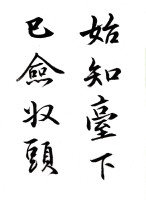 始知臺下
已僉收頭